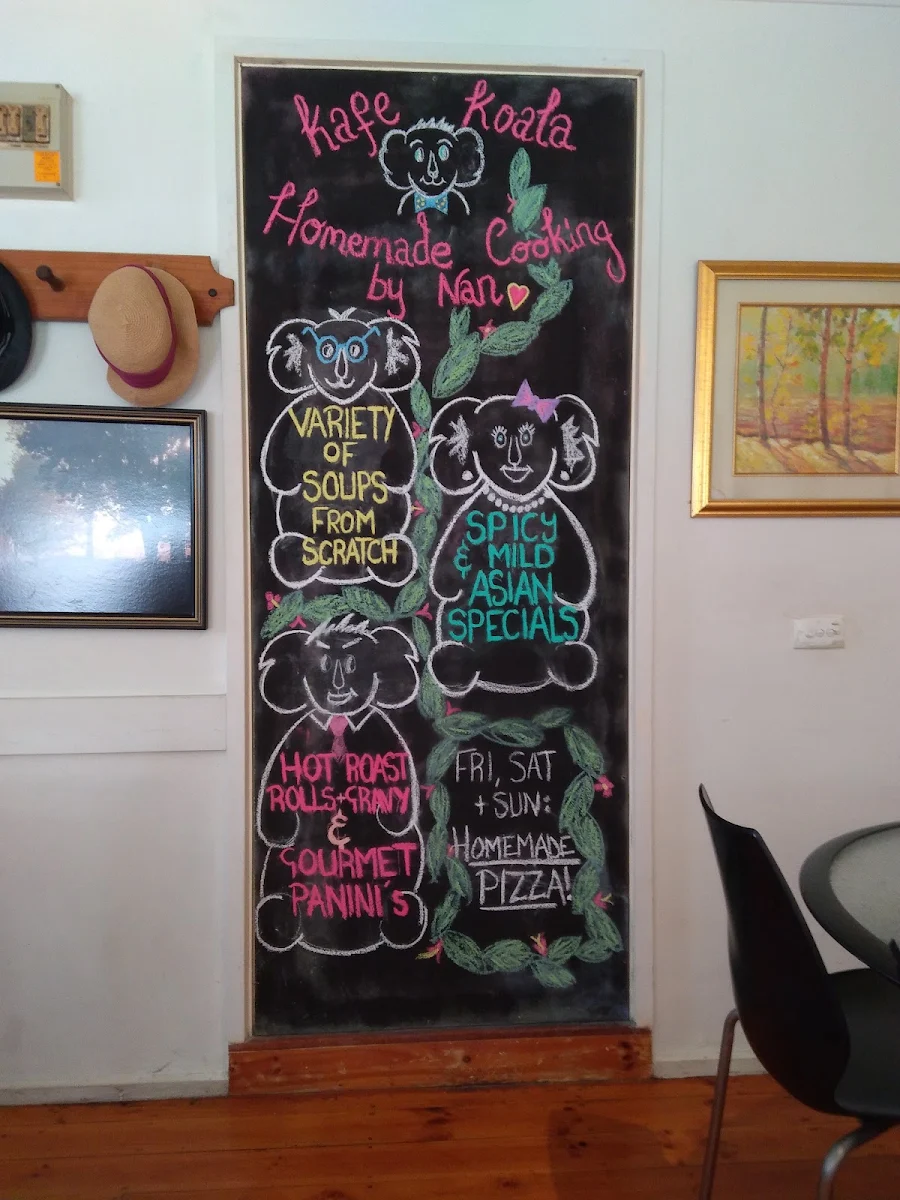 Kafe Koala
Homemade Cooking
by Nan
VARIETY
OF
SOUPS
FROM
SCRATCH
SPICY
& MILD
ASIAN
SPECIALS
HOT ROAST
ROLLS+GRAVY
&
GOURMET
PANINI'S
FRI, SAT
+ SUN:
HOMEMADE
PIZZA!